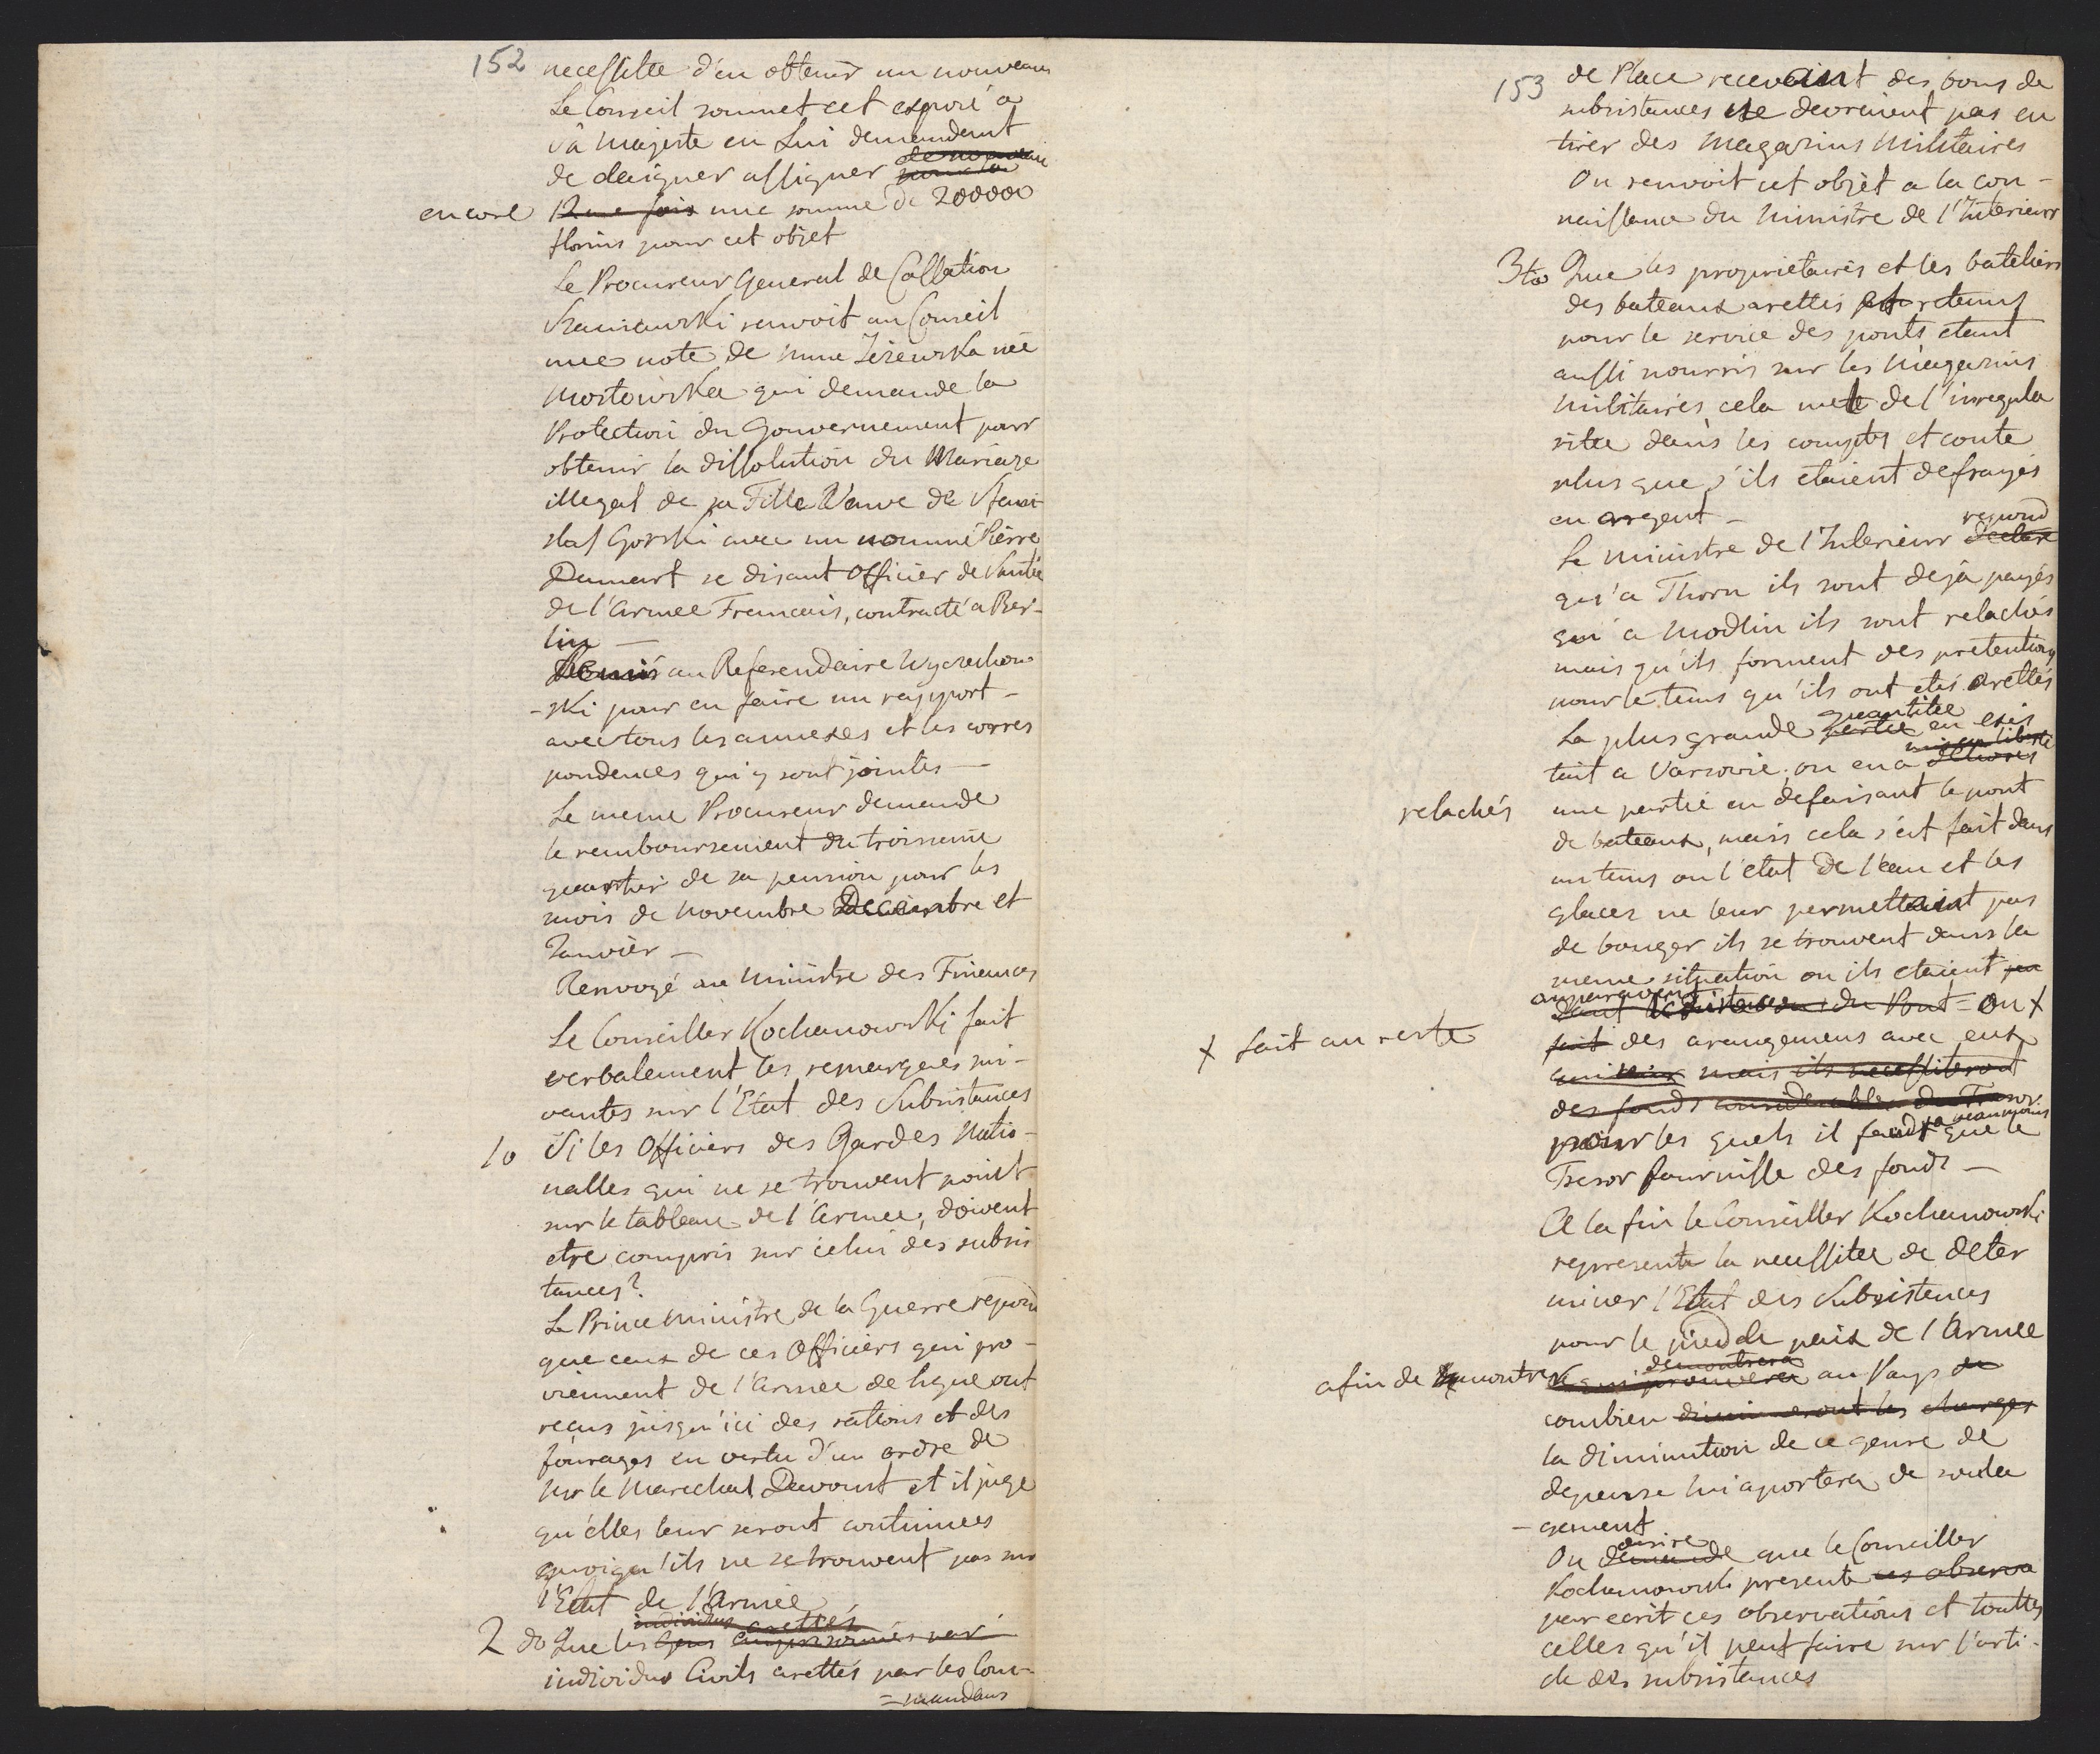 152
necessitée d'en obtenir un nouveau
Le Conseil soumet cet exposé a
Sa Majesté en Lui demandant
de nouveau
de daigner assigner pour la
encore 12me fois une somme de 200000
florins pour cet objet
Le Procureur General de Cassation
Szaniawski renvoit au Conseil
une note de Mme Jezewska née
Mostowska qui demande la
Protection du Gouvernement pour
obtenir la dissolution du Mariage
illegal de sa Fille Veuve de Stanis
slas Gorski avec un nommé Pierre
Dumart se disant Officier de Santée
de l'Armee Francais, contracté a Ber-
lin —
Remis au Referendaire Wyczechow
-ski pour en faire un rapport –
avec tous les annexes et les corres
pondences qui y sont jointes —
Le meme Procureur demande
le remboursement du troisieme
quartier de sa pension pour les
mois de Novembre Decembre et
Janvier –
Renvoyé au Ministre des Finances
Le Conseiller Kochanowski fait
verbalement les remarques sui-
vantes sur l'Etat des Subsistances
1o Si les Officiers des Gardes Natio-
nalles qui ne se trouvent point
sur le tableau de l'Armee, doivent
etre compris sur celui des subsis
tances?
Le Prince Ministre de la Guerre repond
que ceux de ces Officiers qui pro-
viennent de l'armée de ligne ont
recus jusqu'ici des rations et des
fourages en vertu d'un ordre de
Mr le Marechal Davoust et il juge
qu'elles leur seront continuees
quoiqu'ils ne se trouvent pas sur
l'Etat de l'Armée
individus arettés
2do Que les Gens emprisonnés par
individus Civils arettés par les Com-
=mandans
153
de Place recevaint des bons de
subsistances ne devroient pas en
tirer des magasins Militaires
On renvoit cet objet a la con-
naissance du Ministre de l'Interieur
3tio Que les proprietaires et les bateliers
des bateaux arettés et retenus
pour le service des ponts etant
aussi nourris sur les Magasins
Militaires cela met de l'irregula
ritée dans les comptes et coute
plus que s'ils etaient defrayés
en argent –
repond
Le Ministre de l'Interieur declare
qu'a Thorn ils sont deja payés
qu'a Modlin ils sont relachés
mais qu'ils forment des pretentions
pour le tems qu'ils ont etés arettés
quantitée
La plus grande partie en exis
mis en liberté
tait a Varsovie, on en a delivrés
relachés une partie en defaisant le pont
de bateaux, mais cela s'est fait dans
un tems ou l'etat de l'eau et les
glaces ne leur permettaint pas
de bouger ils se trouvent dans la
meme situation ou ils etaient
auparavent
du Pont = on +
+ fait au reste
fait des arangemens avec eux
mais ils necessiteront
des fonds considerables du Tresor
neanmoins
pour les quels il faudra que le
Tresor fournisse des fonds —
A la fin le Conseiller Kochanowski
represente la necessitee de deter
miner l'Etat des Subsistences
pour le pied de paix de l'Armée
demontrera
afin de demontrer ce qui prouvera au Pays
combien diminueront les charges
la diminution de ce genre de
depense lui aportera de soula
-gement
desire
On demande que le Conseiller
Kochanowski presente ces observa
par ecrit ces observations et touttes
celles qu'il peut faire sur l'arti-
cle des subsistances